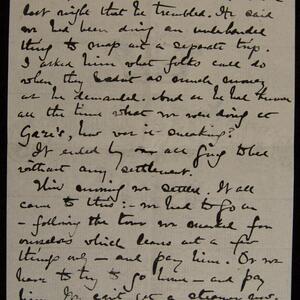 last night that he trembled. He said
we had been doing an underhanded
thing to map out a separate trip.
I asked him what folks could do
when they hadn't as much money
as he demanded. And as he had known
all the time what we were doing at
Gaze's, how was it sneaking?
It ended by all going to bed
without any settlement.
This morning we settled. It all
came to this:- we had to go on
- following the tour we marked for
ourselves which leaves out a few
things only - and pay him. Or we
have to try to go home - and pay
him. We can't get a steamer now